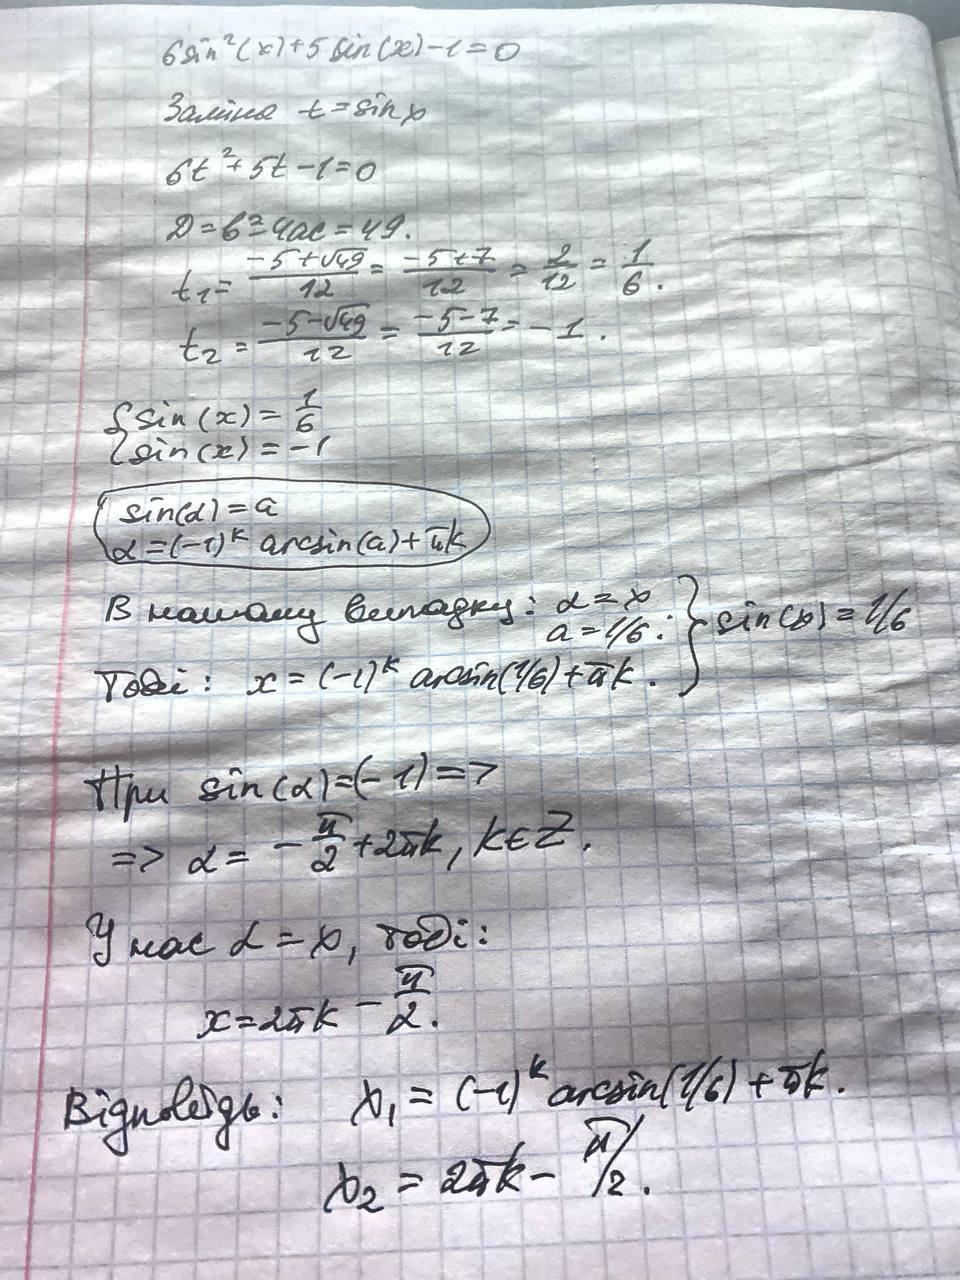 6sin²(x)+5sin(x)-1=0
Заміна t=sin x
6t²+5t-1=0
D=b²-4ac=49.
t₁= (-5+√49)/12 = (-5+7)/12 = 2/12 = 1/6.
t₂ = (-5-√49)/12 = (-5-7)/12 = -1.
{ sin(x)=1/6
sin(x)=-1
sin(α)=a
α=(-1)ᵏ arcsin(a)+πk
В нашому випадку: α=x
a=1/6. } sin(x)=1/6
Тоді: x=(-1)ᵏ arcsin(1/6)+πk.
При sin(α)=(-1)=>
=> α= -π/2+2πk, k∈Z.
У нас α=x, тоді:
x=2πk - π/2.
Відповідь: x₁=(-1)ᵏ arcsin(1/6)+πk.
x₂=2πk-π/2.